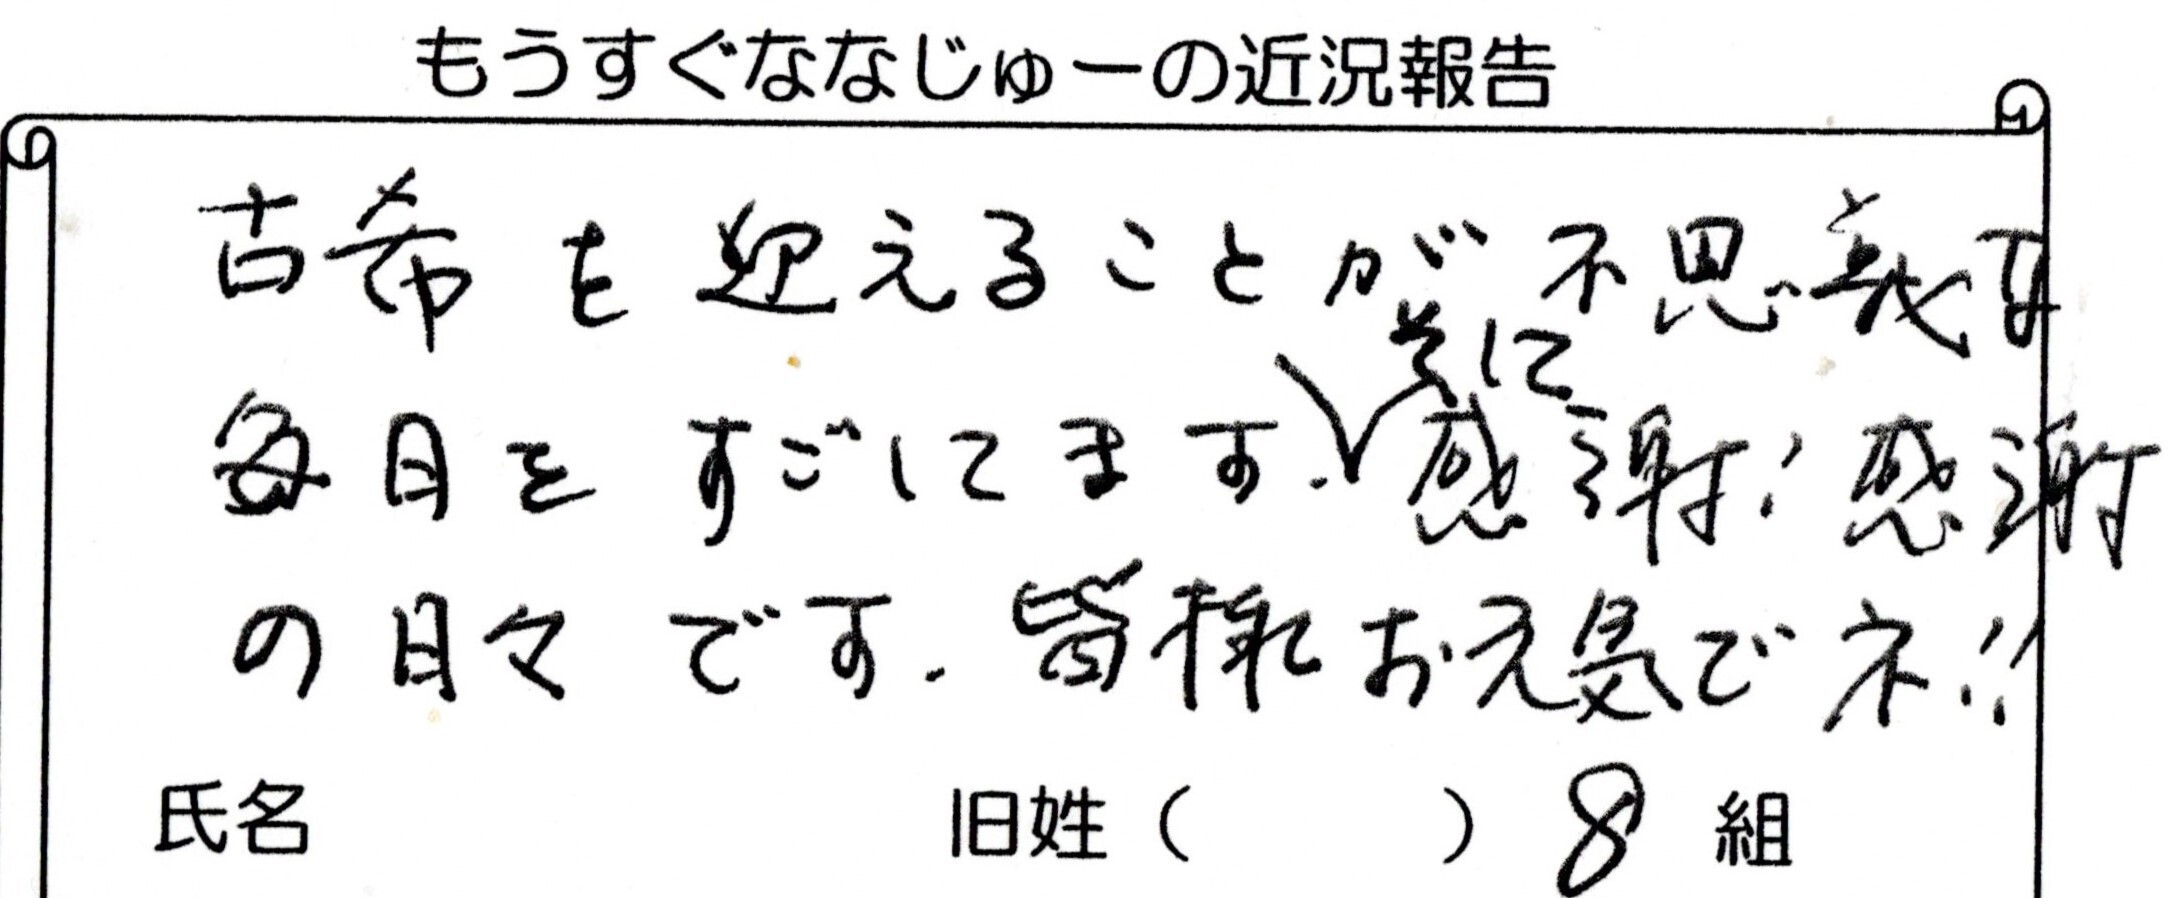 もうすぐななじゅーの近況報告
古希を迎えることが不思義な
毎日をすごしてます.それに感謝!感謝
の日々です.皆様お元気でネ!!
氏名 旧姓( ) 8 組